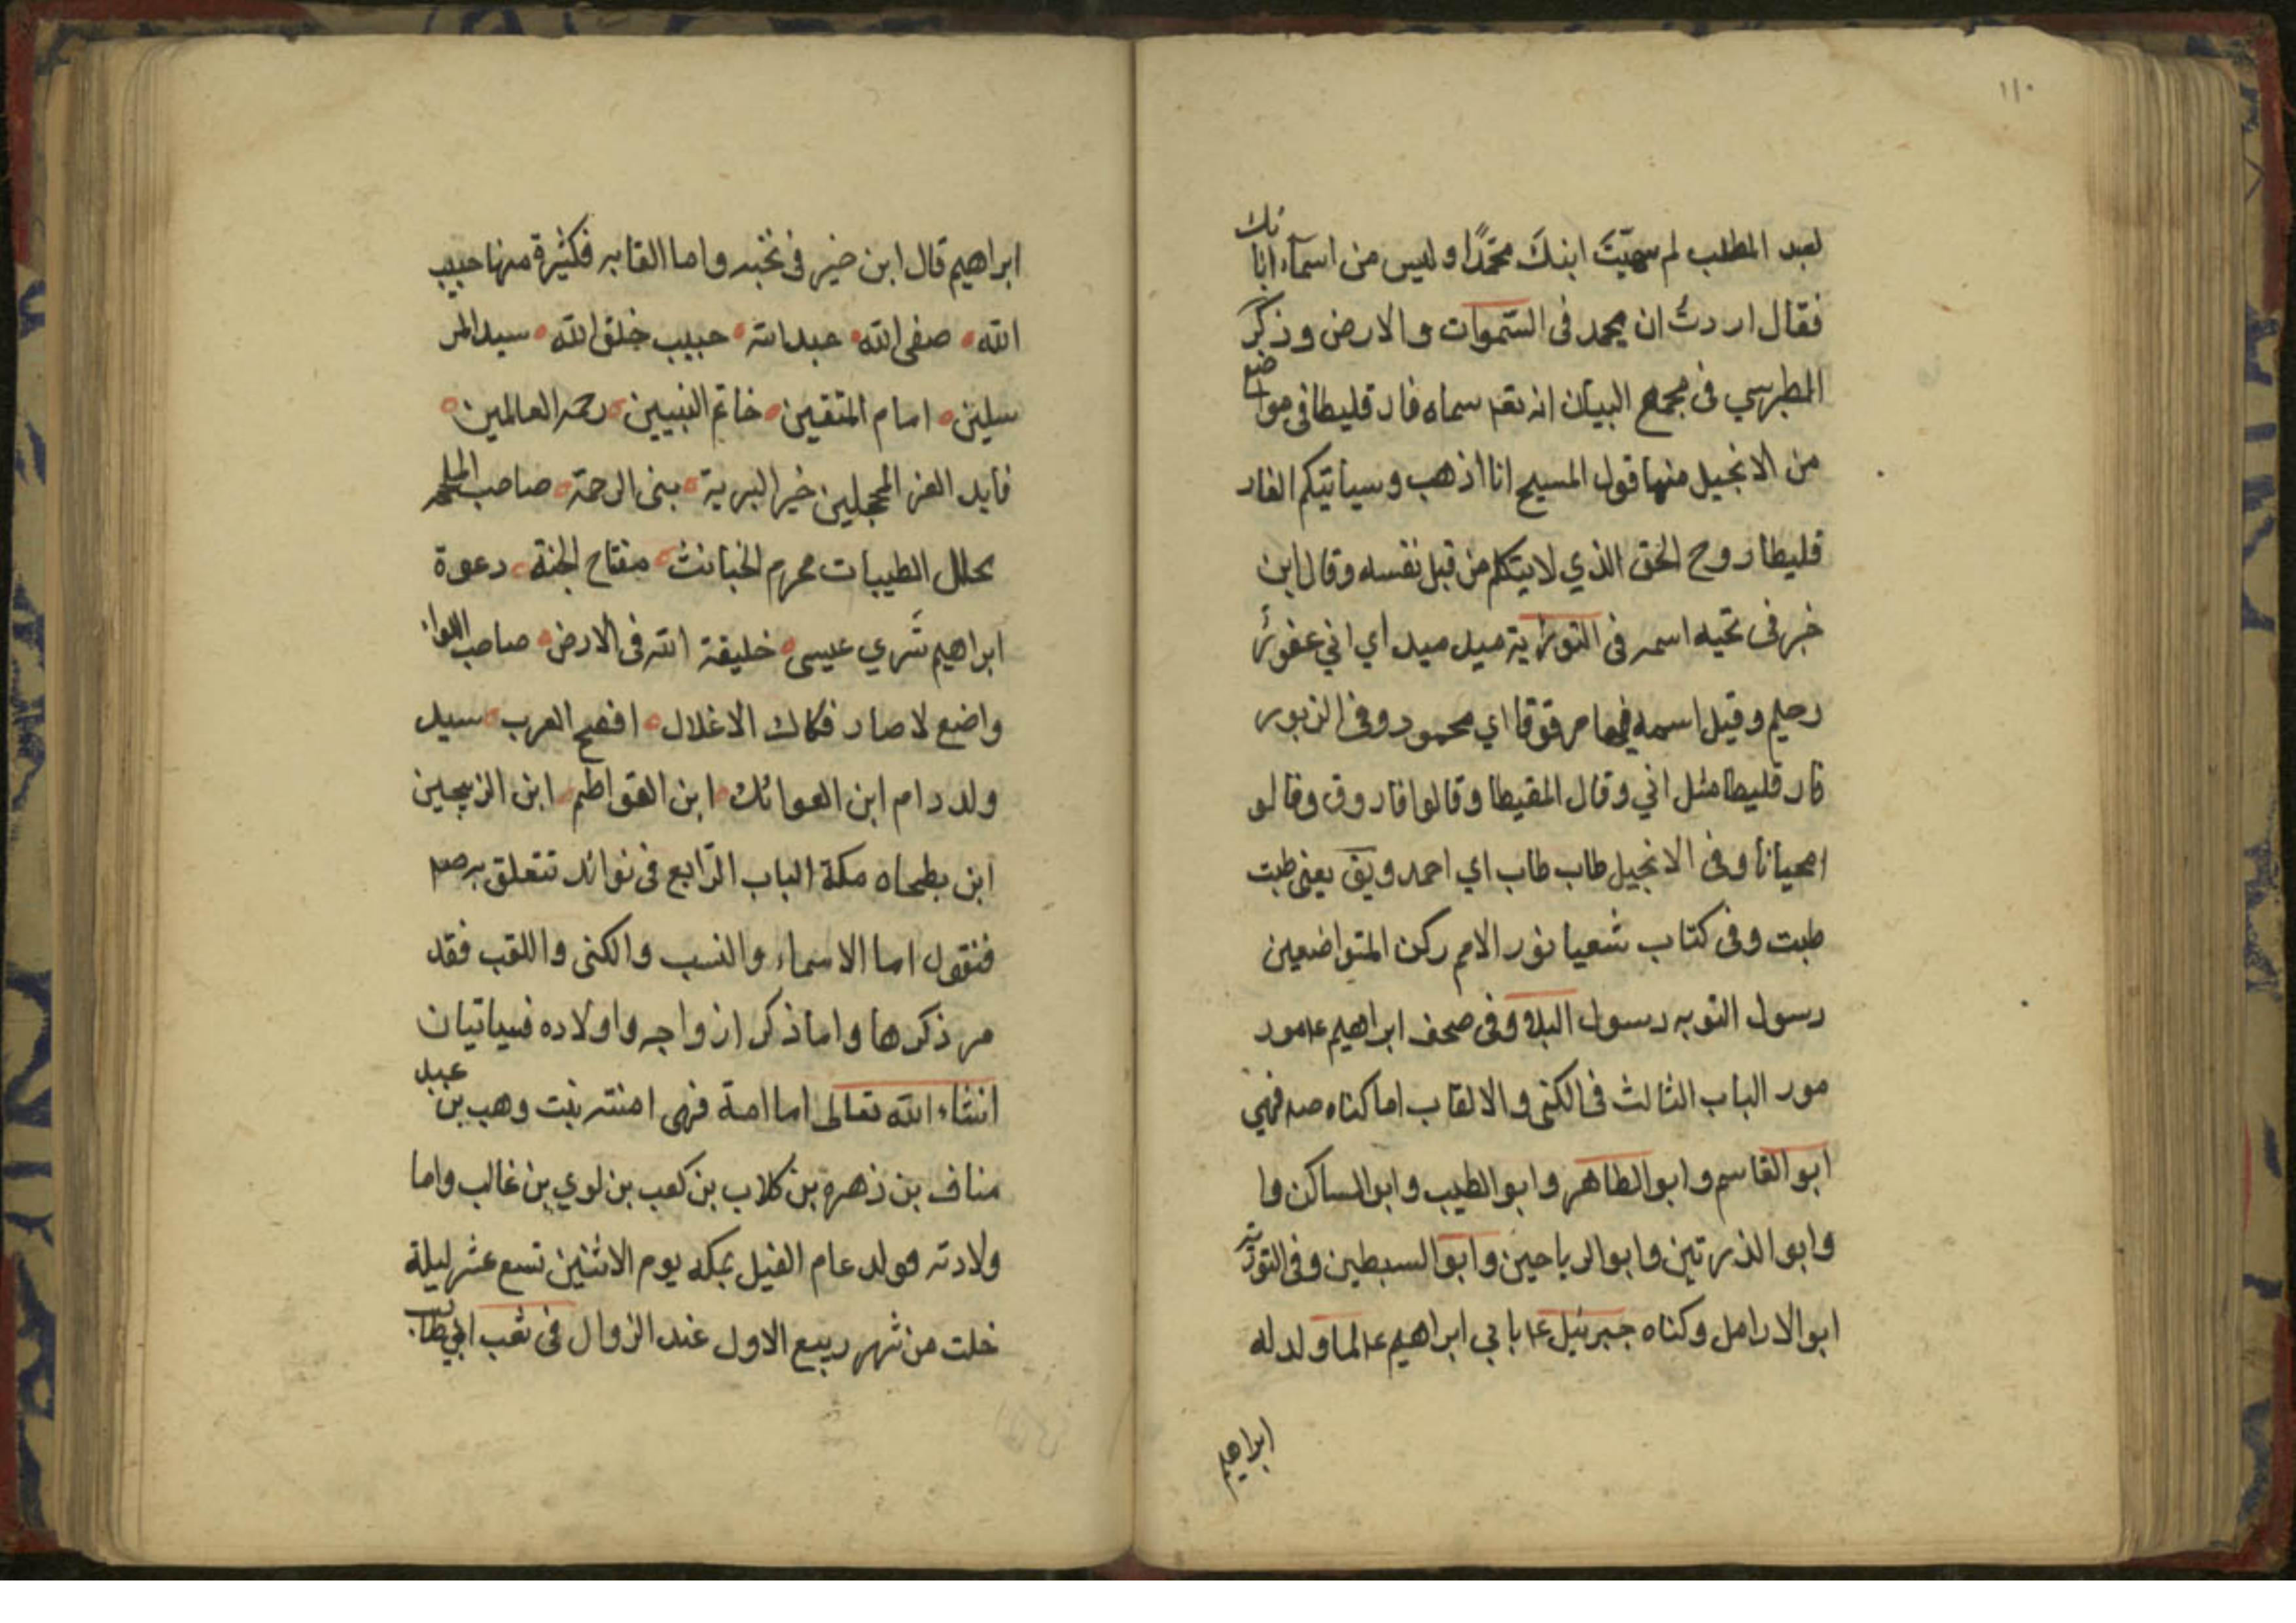 ١١٠
لعبد المطلب لم سميّتَ ابنكَ محمّدًا وليس من اسمآء ابائك
فقال اردتُ ان يحمد فى السّموات والارض وذكر
الطبرسي فى مجمع البيان انه تعم سماه فارقليطا فى مواضع
من الانجيل منها قول المسيح انا اذهب وسياتيكم الفار
قليطا روح الحق الذي لا يتكلم من قبل نفسه وقال ابن
خبر فى نخبه اسمه فى التورية ميد ميد اي اني غفورٌ
رحيم وقيل اسمه فيها مرقوقا اي محمود وفى الزبور
فارقليطا مثل اني وقال المقيطا وقالوا فاروق وقالو
امحيانا وفى الانجيل طاب طاب اي احمد ويق يعنى طبت
طبت وفى كتاب شعيا نور الامم ركن المتواضعين
رسول التوبه رسول البلاء وفى صحف ابراهيم ع مود
مور الباب الثالث فى الكنى والالقاب اما كناه صم فهي
ابو القاسم وابو الطاهر وابو الطيب وابو المساكن وا
وابو الذرتين وابو الرياحين وابو السبطين وفى التورية
ابو الارامل وكناه جبرئيل ع بابي ابراهيم ع لما ولد له
ابراهيم
ابراهيم قال ابن خبر فى نخبه واما القابه فكثيرة منها حبيب
الله صفى الله عبد الله حبيب خلق الله سيد المر
سلين امام المتقين خاتم النبيين رحمه العالمين
قايد الغر المحجلين خير البرية بنى الرحمة صاحب الملحمه
يحلل الطيبات محرم الخبائث مفتاح الجنة دعوة
ابراهيم بشري عيسى خليفة الله فى الارض صاحب اللواء
واضع لاصار فكاك الاغلال افصح العرب سيد
ولد دام ابن العواتك ابن الفواطم ابن الزبيحين
ابن بطحاه مكة الباب الرّابع فى نوائد تتعلق به صم
فنقول اما الاسماء والنسب والكنى واللقب فقد
مر ذكرها واما ذكر ازواجه واولاده فسياتيان
انشاء الله تعالى اما امة فهى امنته بنت وهب بن عبد
مناف بن زهره بن كلاب بن كعب بن لوي بن غالب واما
ولادته فولد عام الفيل بمكه يوم الاثنين تسع عشر ليلة
خلت من شهر ربيع الاول عند الزوال فى شعب ابي طالب